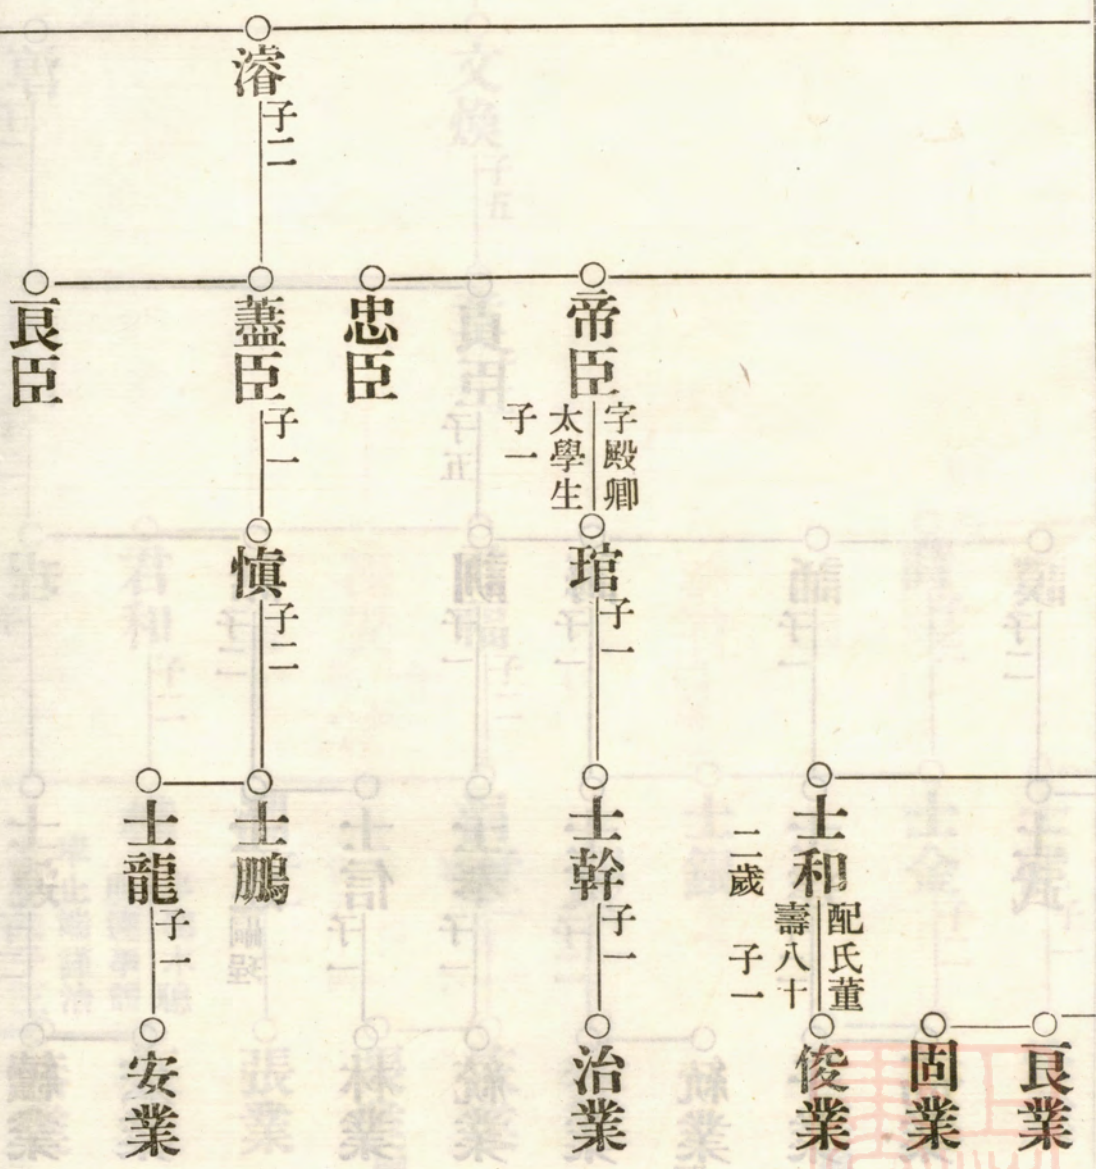 濬
子二
帝臣
字殿卿
太學生
子一
忠臣
藎臣
子一
良臣
琯
子一
愼
子二
士和
配氏董
壽八十
二歲 子一
士幹
子一
士鵬
士龍
子一
良業
固業
俊業
治業
安業